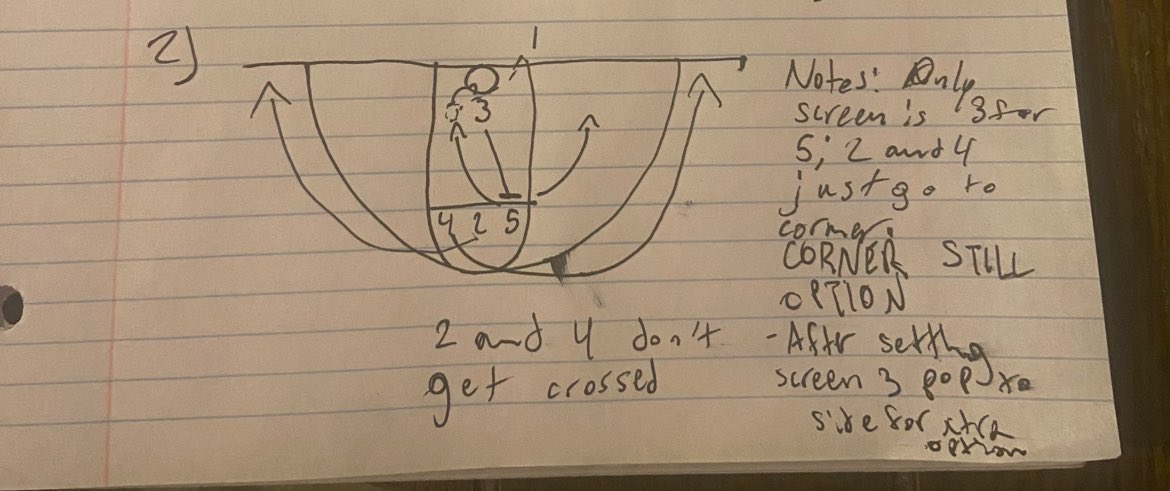 2)
1
3
4 2 5
2 and 4 don't
get crossed
Notes: Only
screen is 3 for
5; 2 and 4
just go to
corner.
CORNER STILL
OPTION
- After setting
screen 3 pop to
side for xtra
option